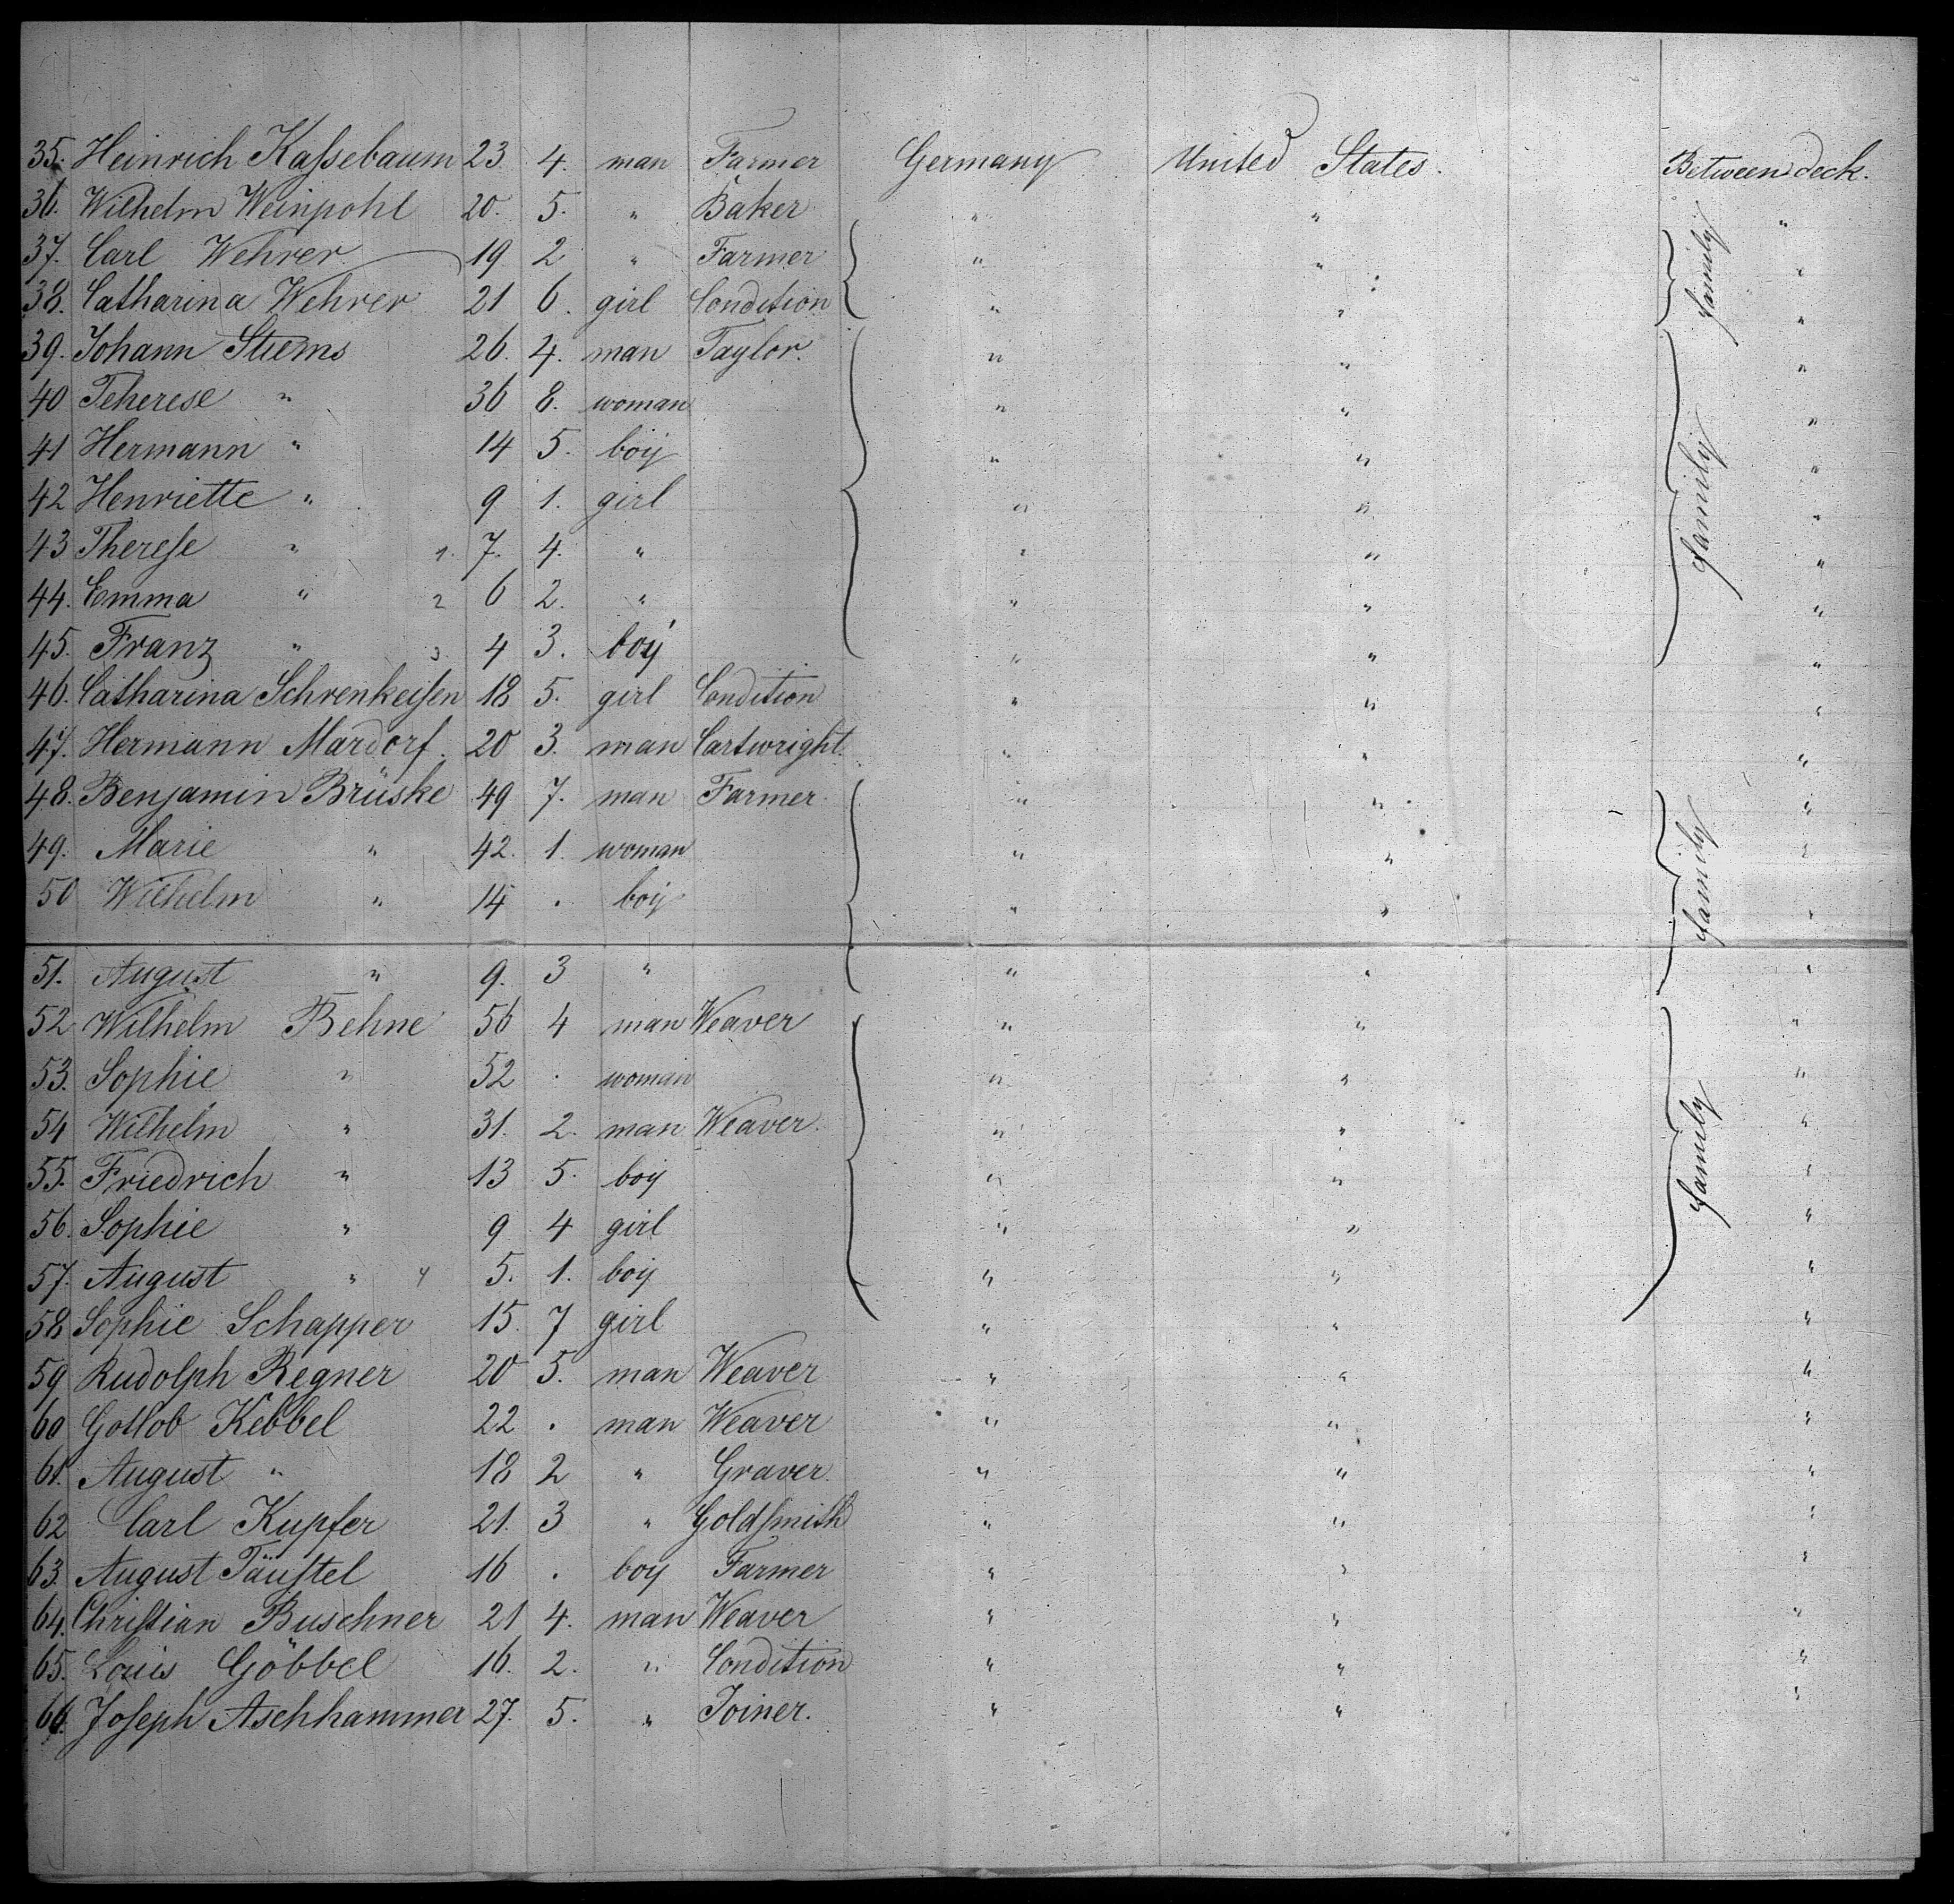 35. Heinrich Kaſsebaum 23 4. man Farmer Germany United States. Between deck.
36. Wilhelm Weinpohl 20. 5. " Baker " " "
37. Carl Wehrer 19 2 " Farmer " " family "
38. Catharina Wehrer 21 6. girl Condition " " "
39. Johann Stiems 26. 4. man Taylor. " " "
40 Teherese " 36 8. woman " " "
41 Hermann " 14 5. boy " " family "
42 Henriette " 9 1. girl " " "
43 Thereſe " 1. 7. 4. " " " "
44. Emma " 2 6 2. " " " "
45. Franz " 3 4 3. boy " " "
46. Catharina Schrenkeiſen 18 5. girl Condition " " "
47. Hermann Mardorf. 20 3. man Cartwright. " " "
48. Benjamin Brüske 49 7. man Farmer " " "
49. Marie " 42. 1. woman " " family "
50 Wilhelm " 14 . boy " " "
51. August " 9. 3 " " " "
52 Wilhelm Behne 56 4 man Weaver " " "
53. Sophie " 52 . woman " " "
54 Wilhelm " 31. 2. man Weaver. " " family "
55. Friedrich " 13 5. boy " " "
56. Sophie " 9 4 girl " " "
57. August " 4 5. 1. boy " " "
58 Sophie Schapper 15. 7 girl " " "
59 Rudolph Regner 20 5. man Weaver " " "
60 Gottlob Kebbel 22 . man Weaver " " "
61. August " 18 2 " Graver. " " "
62 Carl Kupfer 21. 3 " Goldſmith " " "
63. August Täuſtel 16 . boy Farmer " " "
64. Chriſtian Buschner 21 4. man Weaver " " "
65. Louis Göbbel 16. 2. " Condition " " "
66. Joſeph Aschhammer 27. 5. " Joiner. " " "